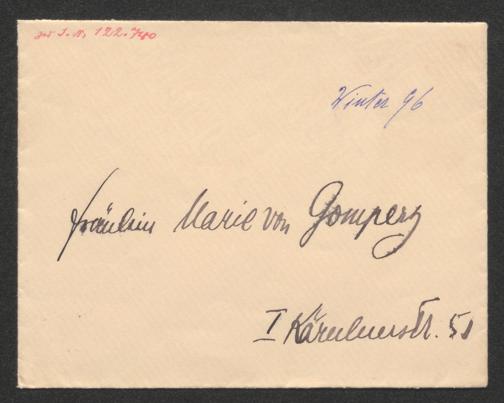 zu I. N. 122.780
Winter 96
Fräulein Marie von Gomperz
I Kärntnerstr. 51